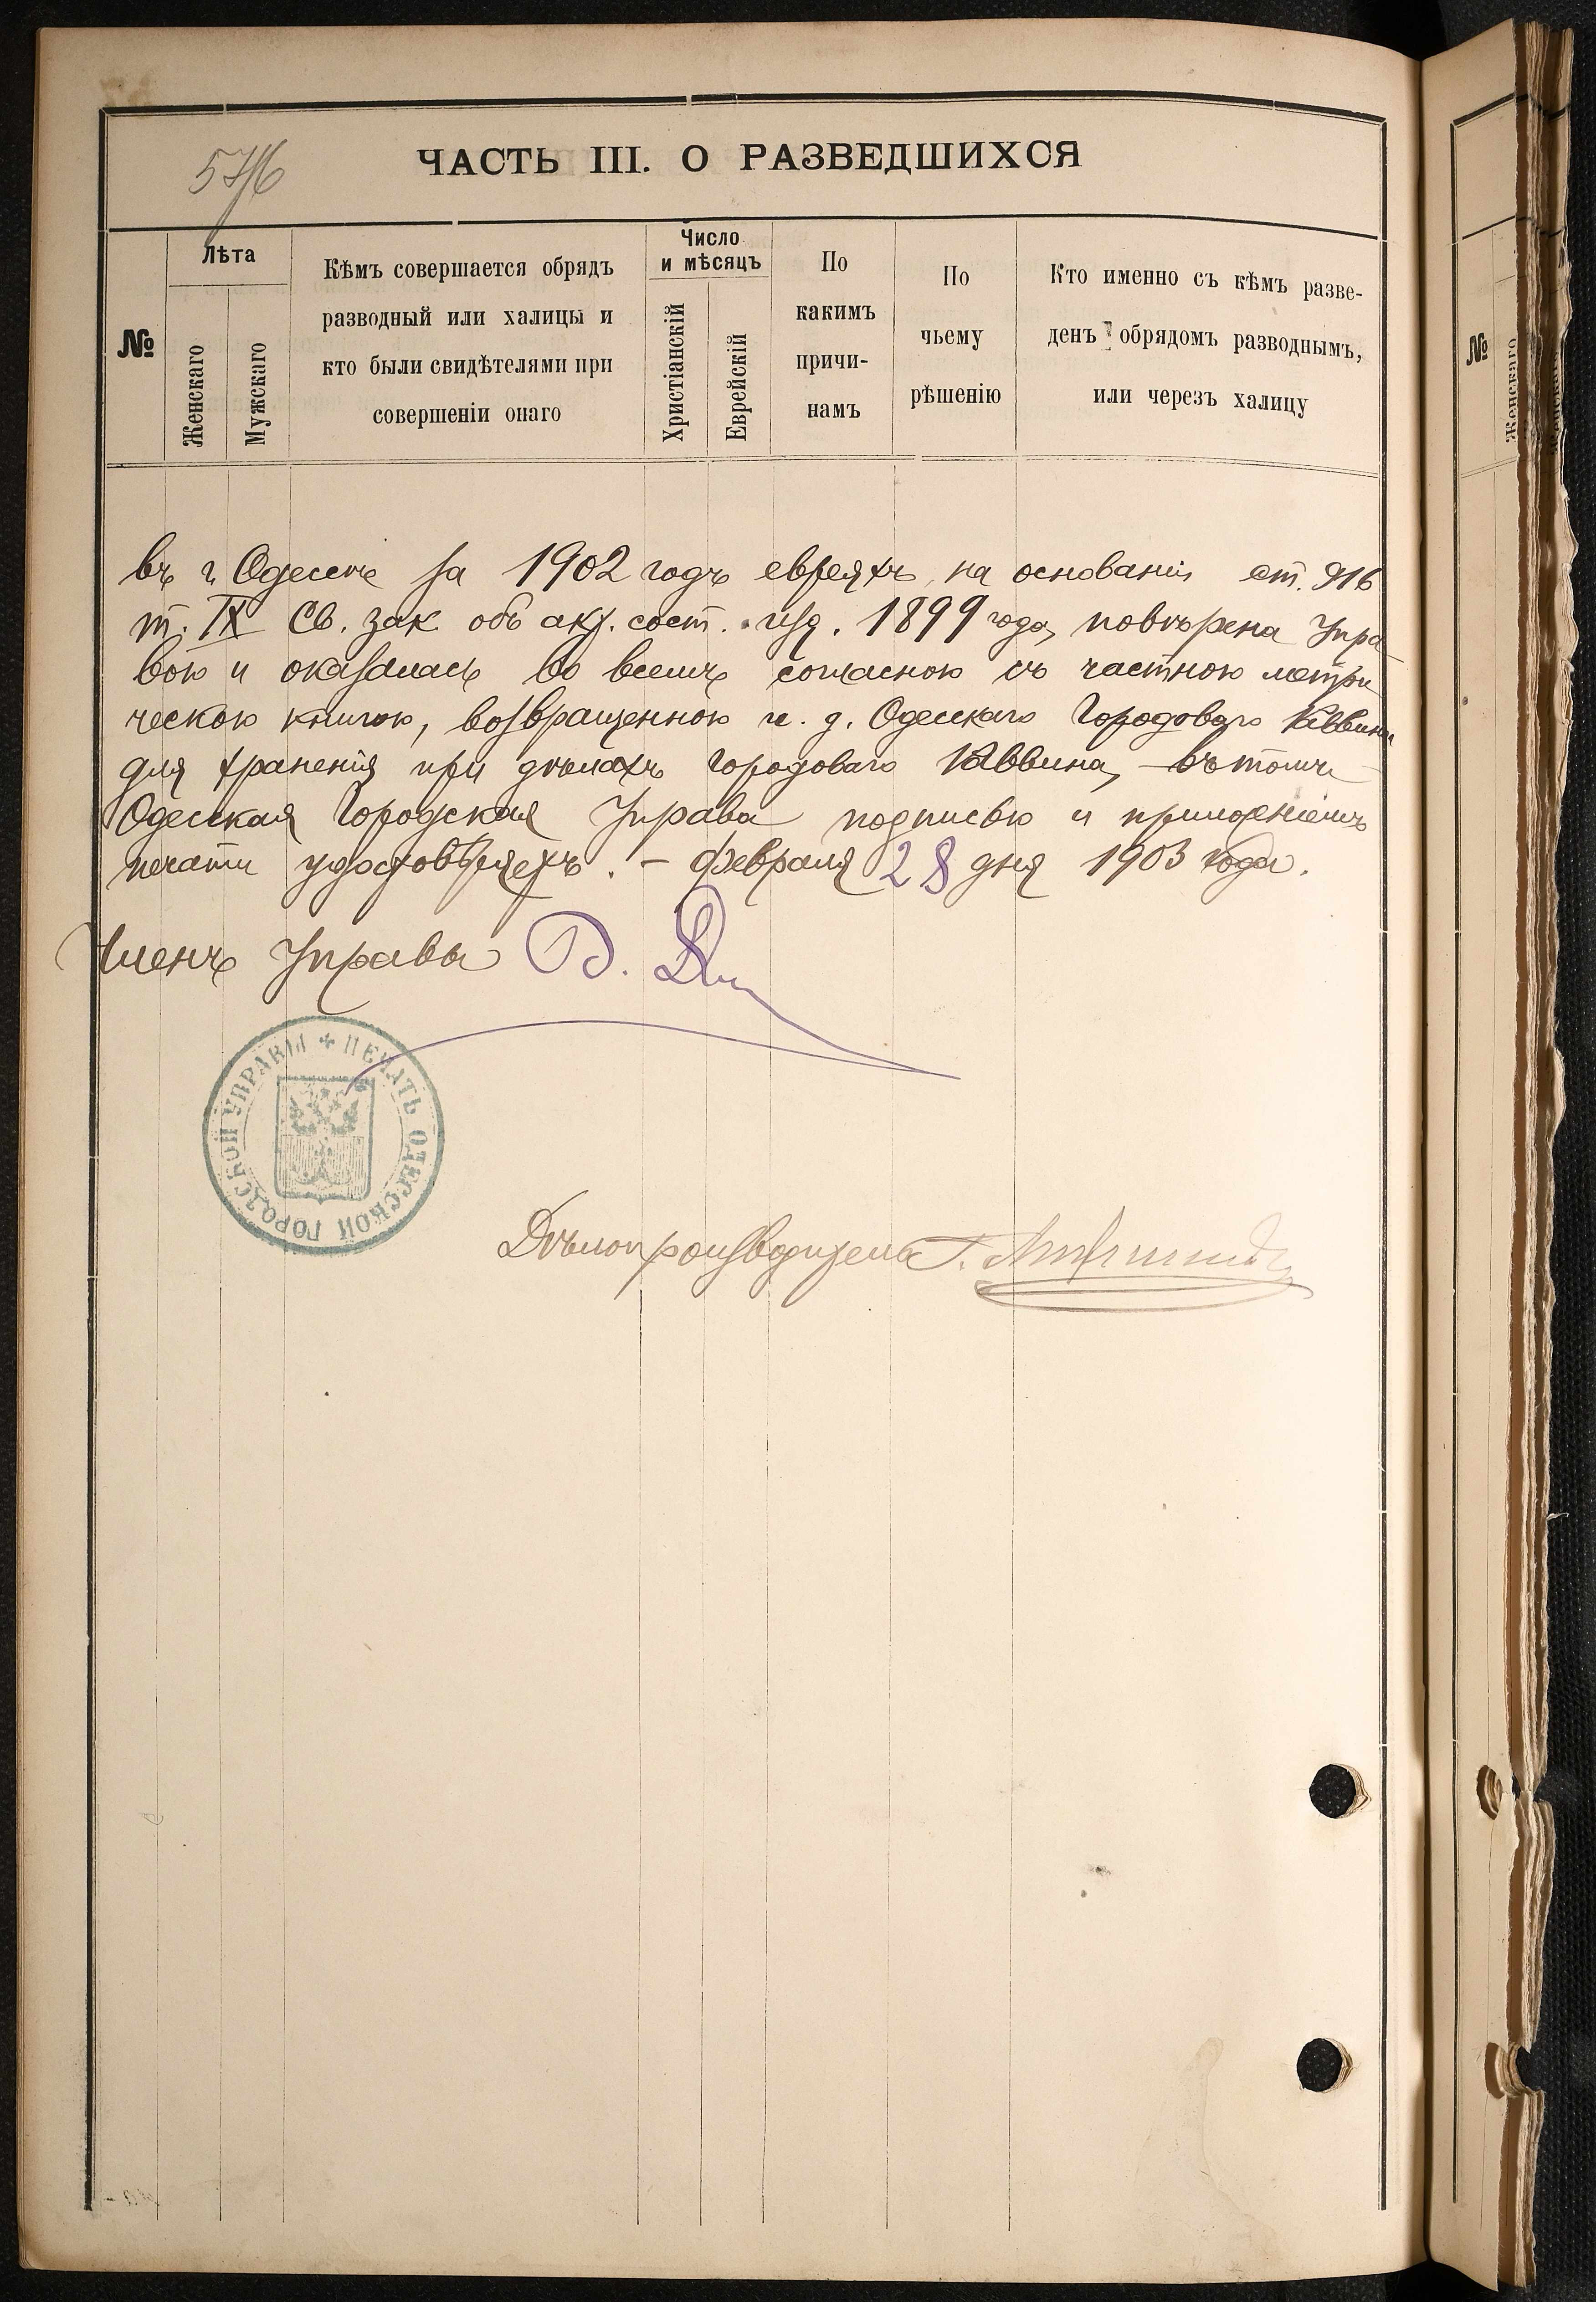 576
ЧАСТЬ III. О РАЗВЕДШИХСЯ
№
Лѣта
Женскаго
Мужскаго
Кѣмъ совершается обрядъ
разводный или халицы и
кто были свидѣтелями при
совершеніи онаго
Число
и мѣсяцъ
Христіанскій
Еврейскій
По
какимъ
причи-
намъ
По
чьему
рѣшенію
Кто именно съ кѣмъ разве-
денъ обрядомъ разводнымъ,
или черезъ халицу
въ г. Одессѣ за 1902 годъ евреяхъ, на основаніи ст. 916
т. IX Св. зак объ акт. сост. изд. 1899 года, повѣрена Упра-
вою и оказалась во всемъ согласною съ частною метри
ческою книгою, возвращенною и. д. Одесскаго Городоваго Раввина
для храненія при дѣлахъ Городоваго Раввина, въ томъ
Одесская Городская Управа подписью и приложеніемъ
печати удостовѣряетъ. – Февраля 28 дня 1903 года.
Членъ Управы
ПЕЧАТЬ ОДЕССКОЙ ГОРОДСКОЙ УПРАВЫ
Дѣлопроизводитель
№
Женскаго